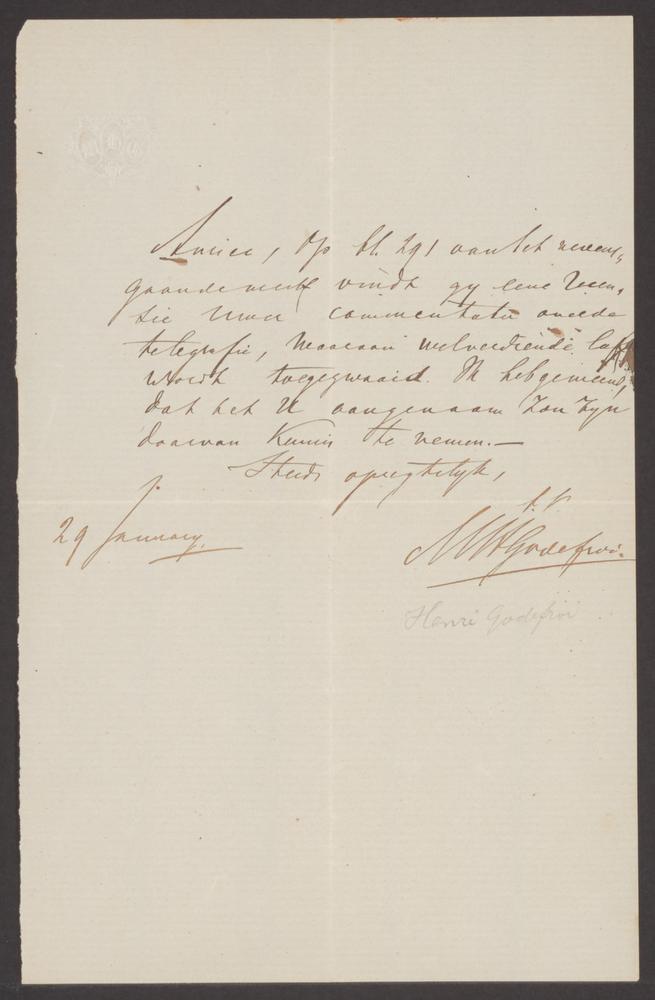 Amice, Op bl. 291 van het nevens„
gaande werk vindt gy eene Recen„
sie Uwer commentatie over de
telegrafie, waaraan welverdiende lof
wordt toegezwaaid. Ik heb gemeend,
dat het U aangenaam zou zyn
daarvan kennis te nemen.—
Steeds opregtelyk,
t. v.
29 January.
MH Godefroi.
Henri Godefroi